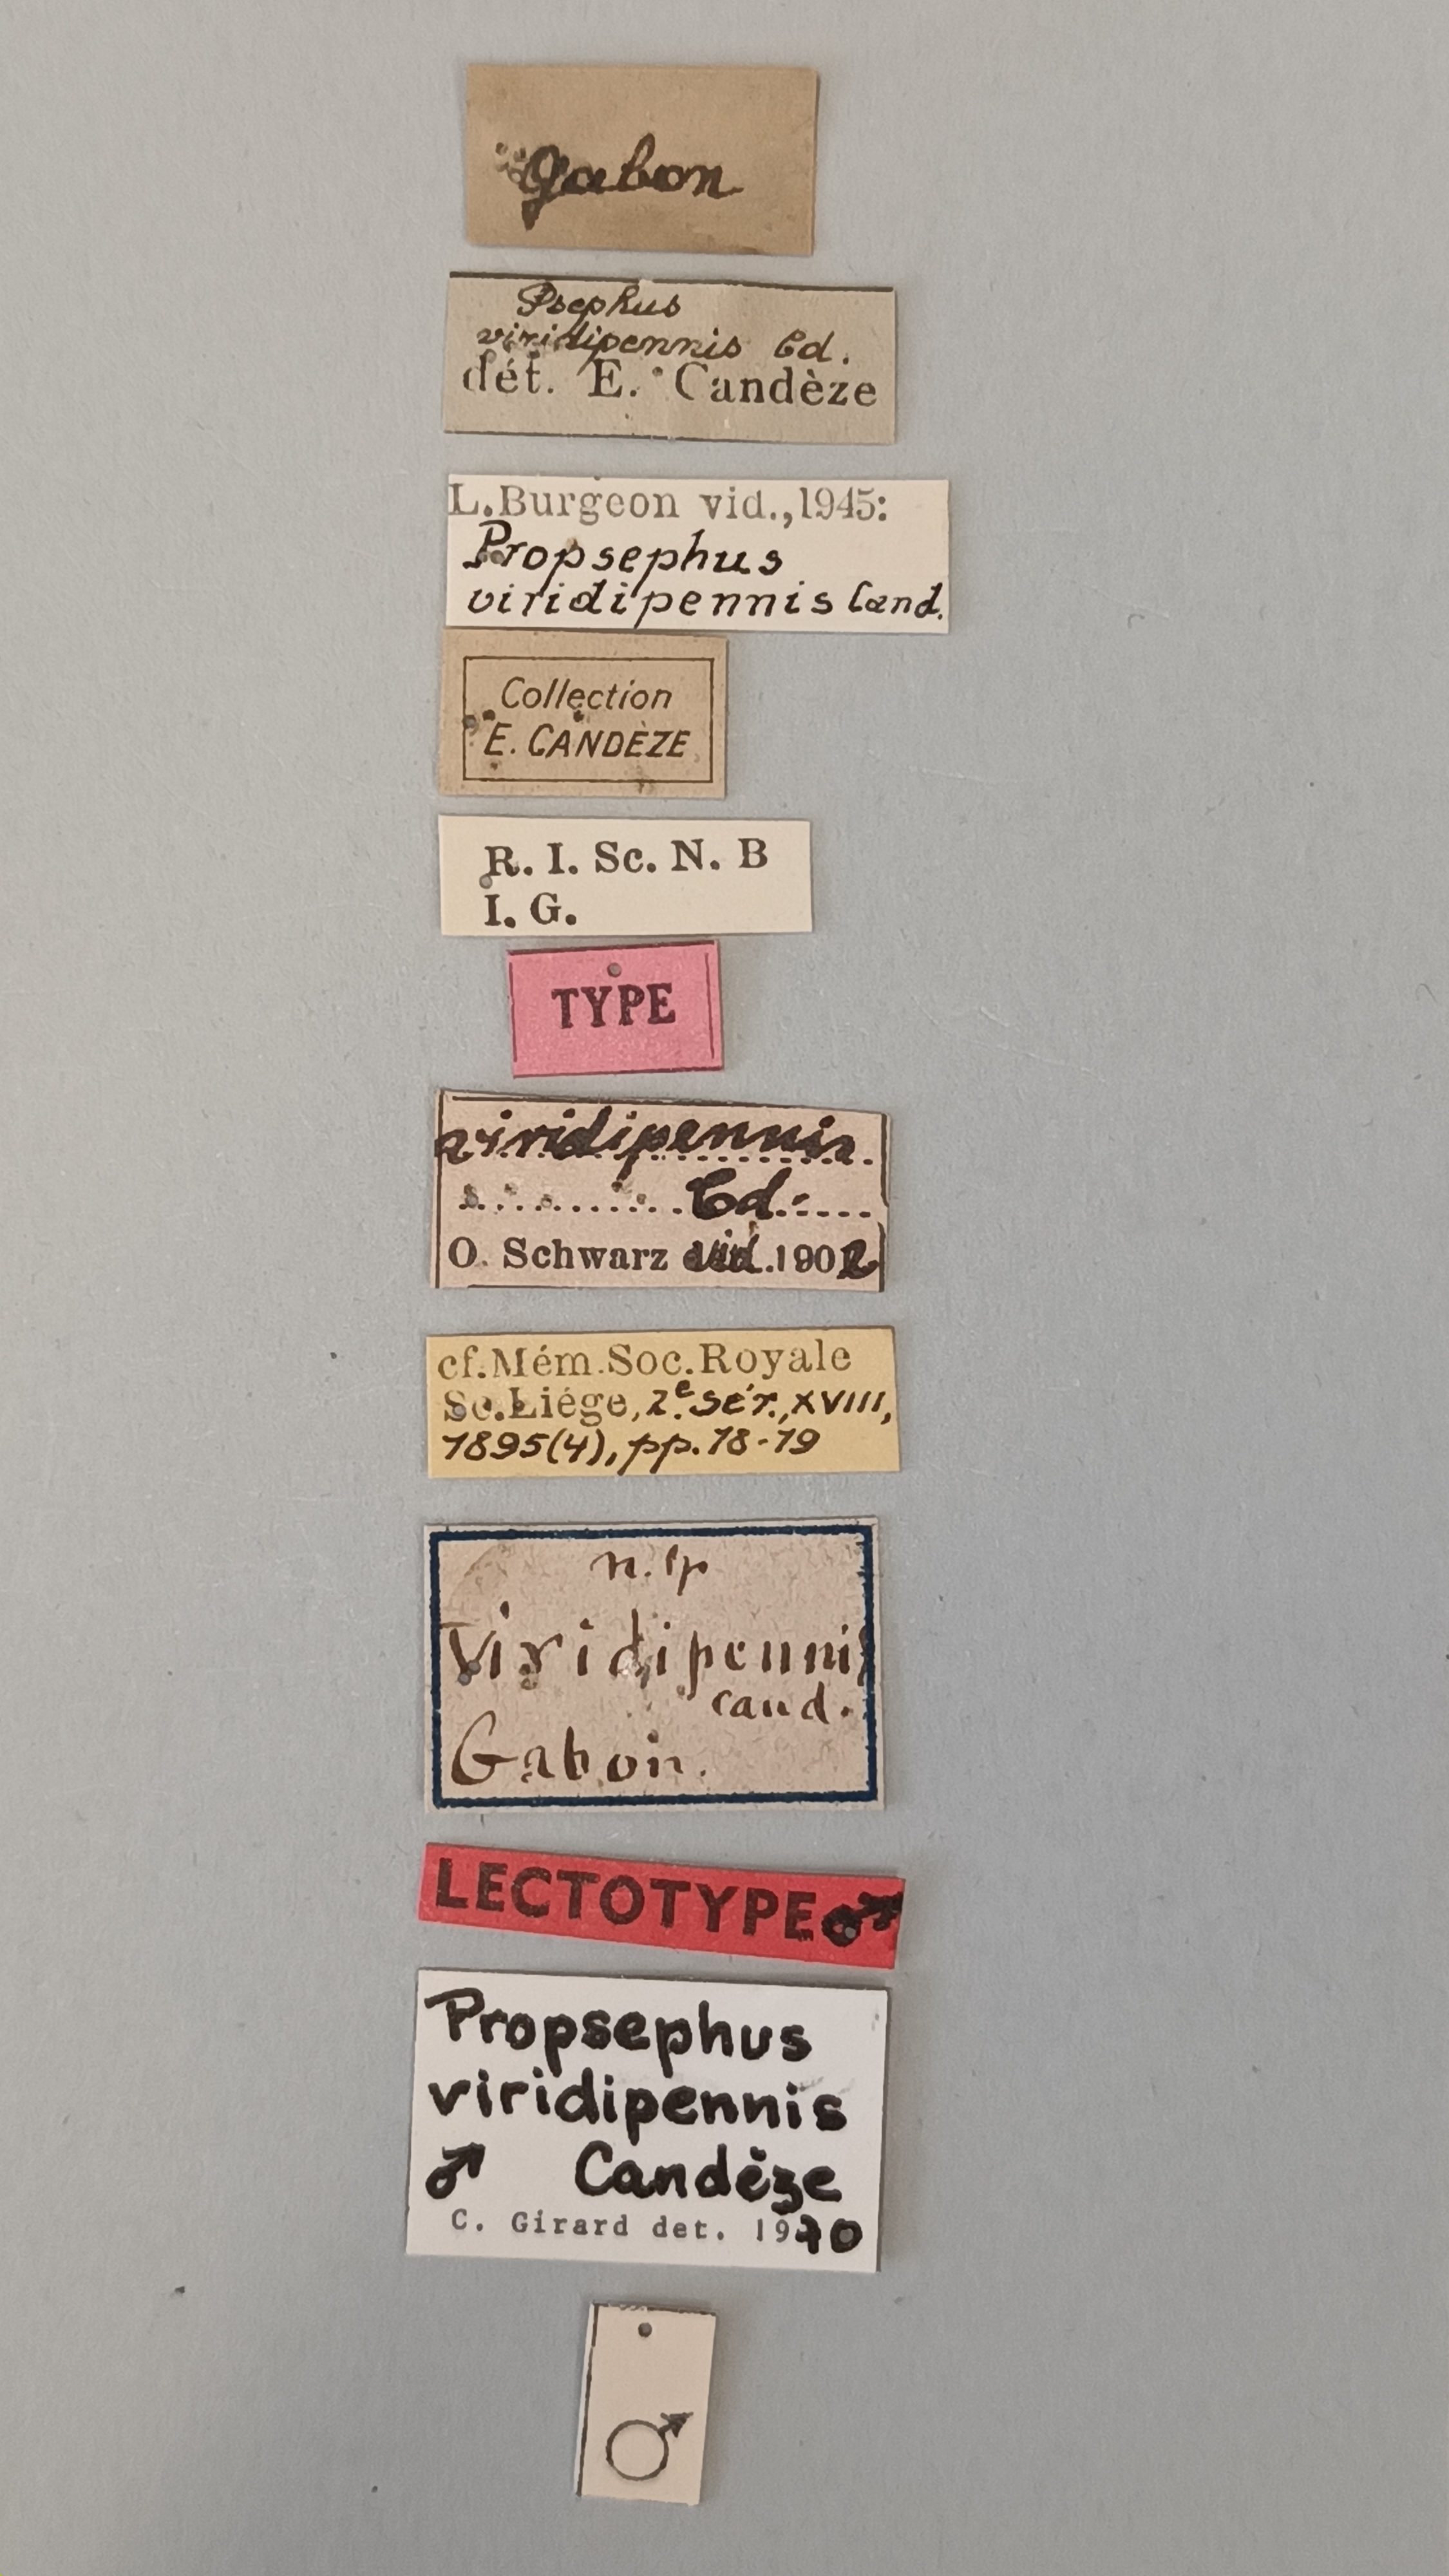 Gabon
Psephus
viridipennis Cd.
dét. E. Candèze
L.Burgeon vid.,1945:
Propsephus
viridipennis Cand.
Collection
E. CANDÈZE
R. I. Sc. N. B
I. G.
TYPE
viridipennis
Cd.
O. Schwarz vid. 1902
cf.Mém.Soc.Royale
Sc.Liége, 2e. sér., XVIII,
1895(4), pp. 18-19
n. sp
Viridipennis
Cand.
Gabon.
LECTOTYPE ♂
Propsephus
viridipennis
♂ Candèze
C. Girard det. 1970
♂